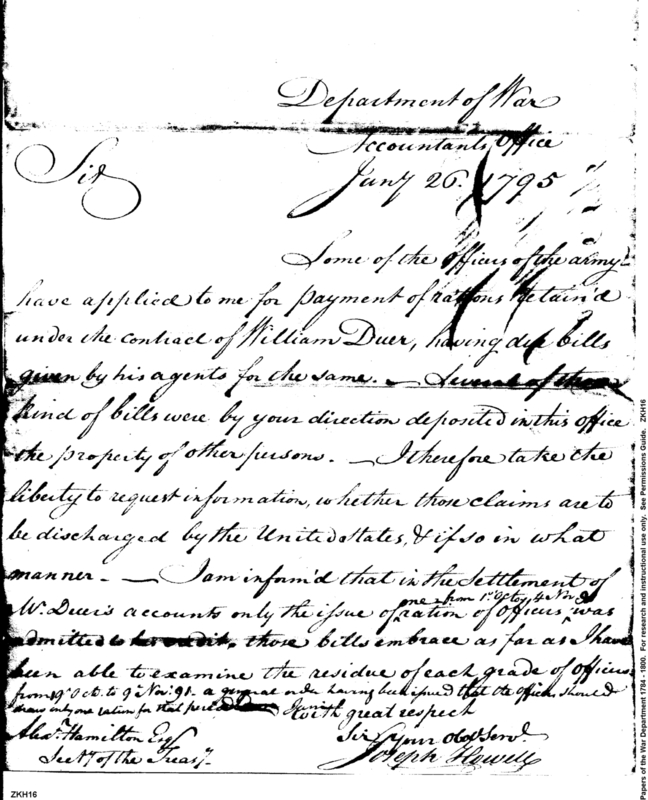 Department of War
Accountants Office
Sir
Jany 26. 1795
Some of the officers of the army
have applied to me for payment of rations Retain'd
under the contract of William Duer, having due bills
given by his agents for the same. — Several of these
kind of bills were by your direction deposited in this office
the property of other persons. — I therefore take the
liberty to request information, whether those claims are to
be discharged by the United States, & if so in what
manner — I am inform'd that in the Settlement of
one from 1st Oct to 4 Nov
Mr. Duer's accounts only the issue of ration of Officers was
admitted to his credit, those bills embrace as far as I have
been able to examine the residue of each grade of Officers
from 1st Oct. to 9 Nov. 91. a general order having been issued that the officers should
draw only one ration for that period
with great respect
Alexr. Hamilton Esqr
Sir Your Obdt Servt.
Secty of the Treasy.
Joseph Howell
Papers of the War Department 1784 - 1800. For research and instructional use only. See Permissions Guide. ZKH16
ZKH16